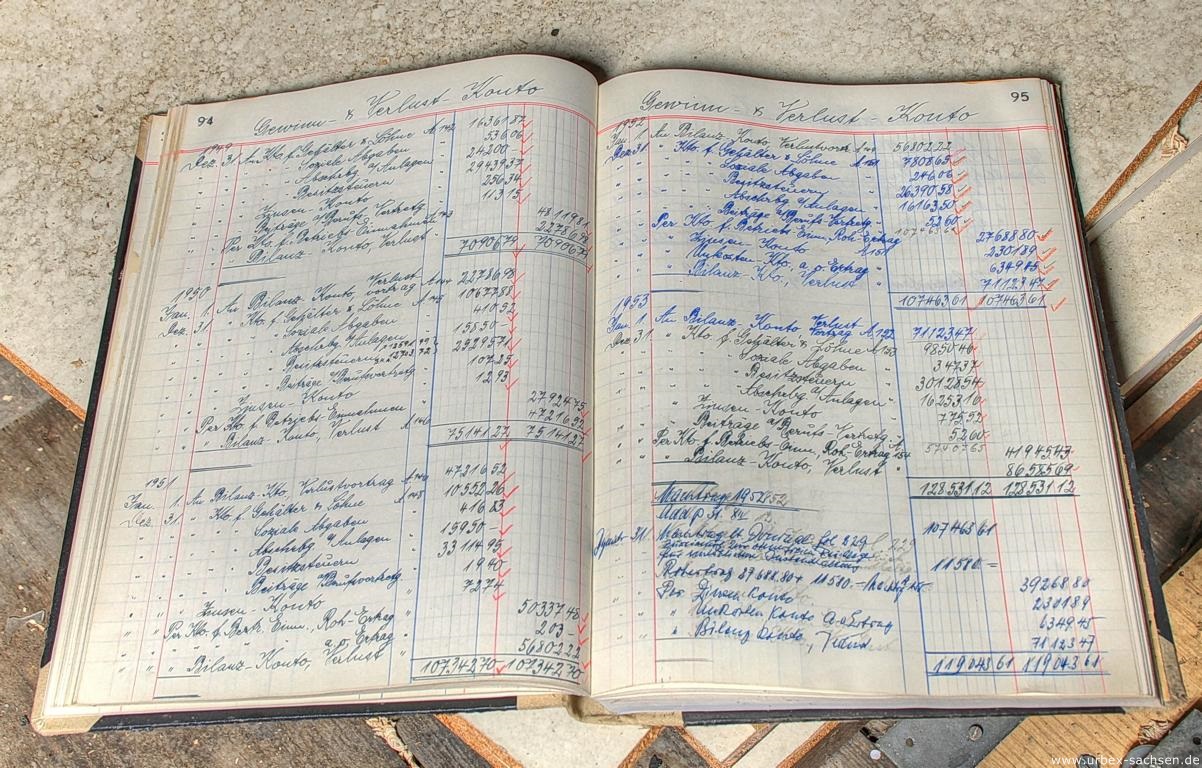 94
Gewinn- & Verlust-Konto
1949
Dez. 31 An Kto. f. Gehälter & Löhne 163618
" " " Soziale Abgaben 53606
" " " Abschrbg. a/Anlagen 24200
" " " Besitzsteuern 2943937
" " " Zinsen-Konto 25634
" " " Beiträge a/Berufs-Vertretg. 11315
" " Per Kto. f. Betriebs-Einnahmen
" " " Bilanz-Konto, Verlust 2278698
7090679 7090679
1950
Jan. 1. An Bilanz-Konto Verlustvortrag 2278698
Dez. 31 " Kto. f. Gehälter & Löhne 1067758
" " " Soziale Abgaben 41092
" " " Abschrbg. a/Anlagen 15550
" " " Besitzsteuern
" " " Beiträge a/Berufsvertretg.
" " " Zinsen-Konto 1295
" " Per Kto. f. Betriebs-Einnahmen 2792475
" " " Bilanz-Konto, Verlust 4721652
7514127 7514127
1951
Jan. 1. An Bilanz-Kto, Verlustvortrag 4721652
Dez. 31. " Kto. f. Gehälter & Löhne 1055226
" " " Soziale Abgaben 41613
" " " Abschrbg. a/Anlagen 15950
" " " Besitzsteuern 3311495
" " " Beiträge a/Berufsvertretg. 1940
" " " Zinsen-Konto 7274
" " Per Kto. f. Betr. Einn., Roh-Ertrag 5033748
" " " a. o. Ertrag 203
" " " Bilanz-Konto, Verlust 5680222
10734270 10734270
95
Gewinn- & Verlust-Konto
1952
Jan. 1 An Bilanz-Konto Verlustvortr. 5680222
Dez. 31 " Kto. f. Gehälter & Löhne 780865
" " " Soziale Abgaben 24606
" " " Besitzsteuern 2639058
" " " Abschrbg. a/Anlagen 1616350
" " " Beiträge a/Berufs-Vertretg. 5260
" " Per Kto. f. Betriebs-Einn. Roh-Ertrag 2768880
" " " Zinsen-Konto 230189
" " " Unkosten-Kto., a. o. Ertrag 634945
" " " Bilanz-Kto., Verlust 7112347
10746361 10746361
1953
Jan. 1 An Bilanz-Konto Verlust Vortrag 7112347
Dez. 31 " Kto. f. Gehälter & Löhne 985046
" " " Soziale Abgaben 34737
" " " Besitzsteuern 3012854
" " " Abschrbg. a/Anlagen 1625316
" " " Zinsen-Konto 77552
" " " Beiträge a/Berufs-Vertretg. 5260
" " Per Kto. f. Betriebs-Einn., Roh-Ertrag 4194543
" " " Bilanz-Konto, Verlust 8658569
12853112 12853112
Nachtrag 1952
10746361
Nachtrag lt. fol 229
11580 =
Rohertrag 27688.80 + 11580.-
Per Zinsen Konto 3926880
" Unkosten Konto a. o. Ertrag 230189
" Bilanz Konto, 634945
7112347
11904361 11904361
www.urbex-sachsen.de